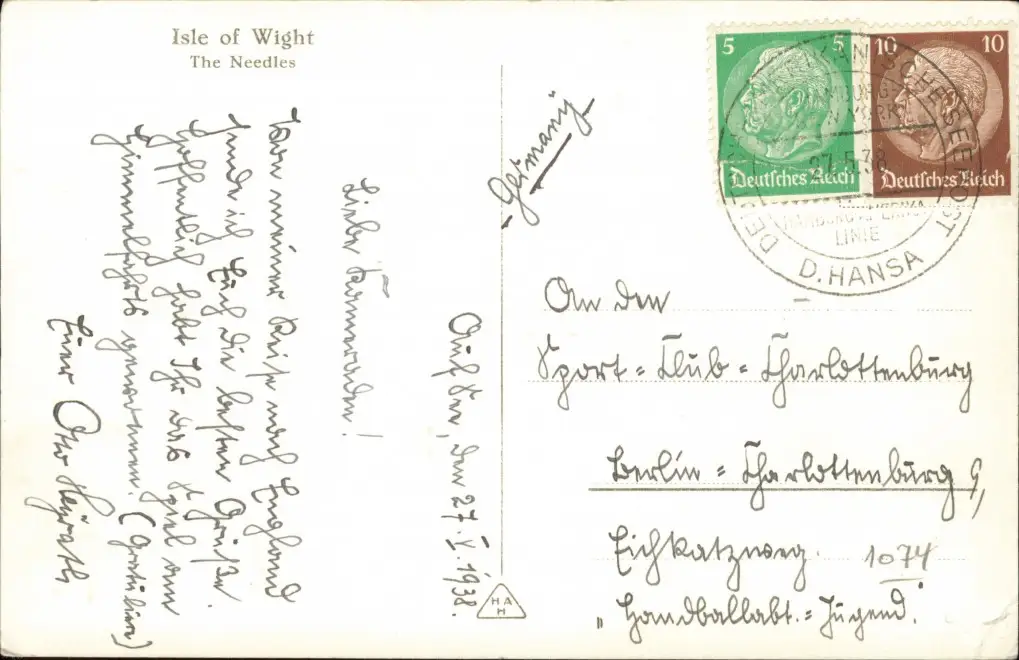 Isle of Wight
The Needles
Auf See, den 27. V. 1938.
Liebe Kameraden!
Von meiner Reise nach England
sende ich Euch die besten Grüße.
Hoffentlich habt Ihr das Spiel am
Himmelfahrts gewonnen. (Gratuliere)
Euer Otto
Germany
5 5
Deutsches Reich
10 10
Deutsches Reich
DEUTSCH-AMERIKANISCHE SEEPOST
HAMBURG-
NEW YORK
27.5.38
HAMBURG-AMERIKA
LINIE
D. HANSA
An den
Sport-Club-Charlottenburg
Berlin-Charlottenburg 9,
Eichkatzweg. 1074
"Handballabt.-Jugend.
HA
H